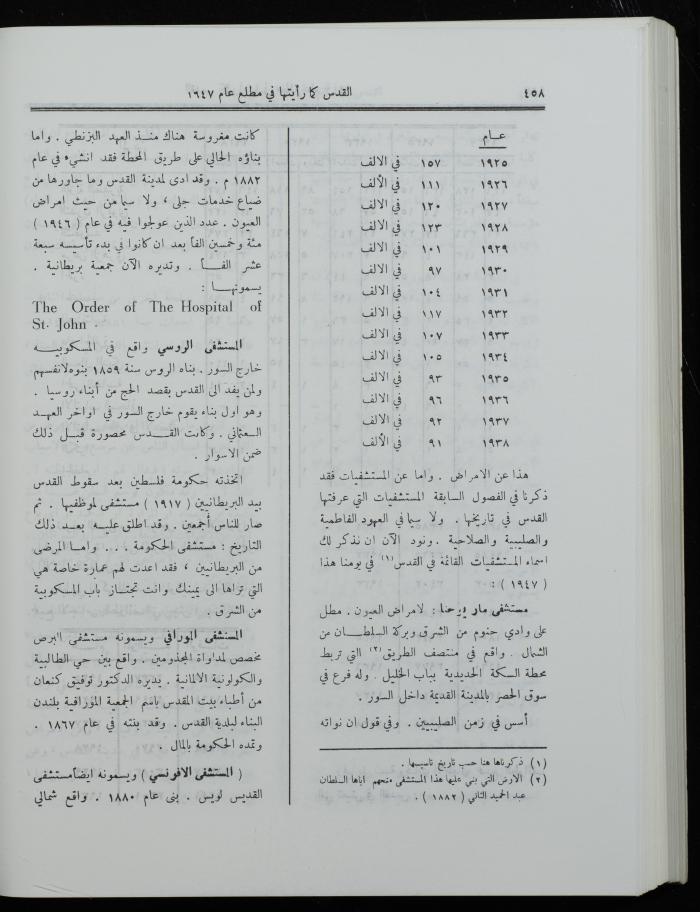 ٤٥٨
القدس كما رأيتها في مطلع عام ١٦٤٧
عـام
١٩٢٥ ١٥٧ في الالف
١٩٢٦ ١١١ في الألف
١٩٢٧ ١٢٠ في الالف
١٩٢٨ ١٢٣ في الالف
١٩٢٩ ١٠١ في الالف
١٩٣٠ ٩٧ في الالف
١٩٣١ ١٠٤ في الالف
١٩٣٢ ١١٧ في الالف
١٩٣٣ ١٠٧ في الالف
١٩٣٤ ١٠٥ في الالف
١٩٣٥ ٩٣ في الالف
١٩٣٦ ٩٦ في الالف
١٩٣٧ ٩٢ في الالف
١٩٣٨ ٩١ في الألف
هذا عن الامراض . واما عن المستشفيات فقد
ذكرنا في الفصول السابقة المستشفيات التي عرفتها
القدس في تاريخها . ولا سيما في العهود الفاطمية
والصليبية والصلاحية . ونود الآن ان نذكر لك
اسماء المستشفيات القائمة في القدس (١) في يومنا هذا
( ١٩٤٧ ) :
مستشفى مار يوحنا : لامراض العيون . مطل
على وادي جنوم من الشرق وبركة السلطـان من
الشمال . واقع في منتصف الطريق (٢) التي تربط
محطة السكة الحديدية بباب الخليل . وله فرع في
سوق الحصر بالمدينة القديمة داخل السور .
أسس في زمن الصليبيين . وفي قول ان نواته
(١) ذكرناها هنا حسب تاريخ تاسيسها .
(٢) الارض التي بني عليها هذا المستشفى منحهم اياها السلطان
عبد الحميد الثاني ( ١٨٨٢ ) .
كانت مغروسة هناك منـذ العهد البزنطي . واما
بناؤه الحالي على طريق المحطة فقد انشيء في عام
١٨٨٢ م . وقد ادى لمدينة القدس وما جاورها من
ضياع خدمات جلى ، ولا سيما من حيث امراض
العيون . عدد الذين عولجوا فيه في عام ( ١٩٤٦ )
مئة وخمسين الفاً بعد ان كانوا في بدء تأسيسه سبعة
عشر الفــاً . وتديره الآن جمعية بريطانية .
يسمونهــا :
The Order of The Hospital of
St. John .
المستشفى الروسي واقع في المسكوبيــه
خارج السور . بناه الروس سنة ١٨٥٩ بنوه لانفسهم
ولمن يفد الى القدس بقصد الحج من أبناء روسيا .
وهو اول بناء يقوم خارج السور في اواخر العهـد
العثماني . وكانت القـدس محصورة قبـل ذلك
ضمن الاسوار .
اتخذته حكومة فلسطين بعد سقوط القدس
بيد البريطانيين ( ١٩١٧ ) مستشفى لموظفيها . ثم
صار للناس أجمعين . وقد اطلق عليـه بعـد ذلك
التاريخ : مستشفى الحكومة . . . وامـا المرضى
من البريطانيين ، فقد اعدت لهم عمارة خاصة هي
التي تراها الى يمينك وانت تجتـاز باب المسكوبية
من الشرق .
المستشفى المورافي ويسمونه مستشفى البرص
مخصص لمداواة المجذومين . واقع بين حي الطالبية
والكولونية الالمانية . يديره الدكتور توفيق كنعان
من أطباء بيت المقدس باسم الجمعية المورافية بلندن
البناء لبلدية القدس . وقد بنته في عام ١٨٦٧ .
وتمده الحكومة بالمال .
( المستشفى الافرنسي ) ويسمونه ايضاً مستشفى
القديس لويس . بني عام ١٨٨٠ . واقع شمالي